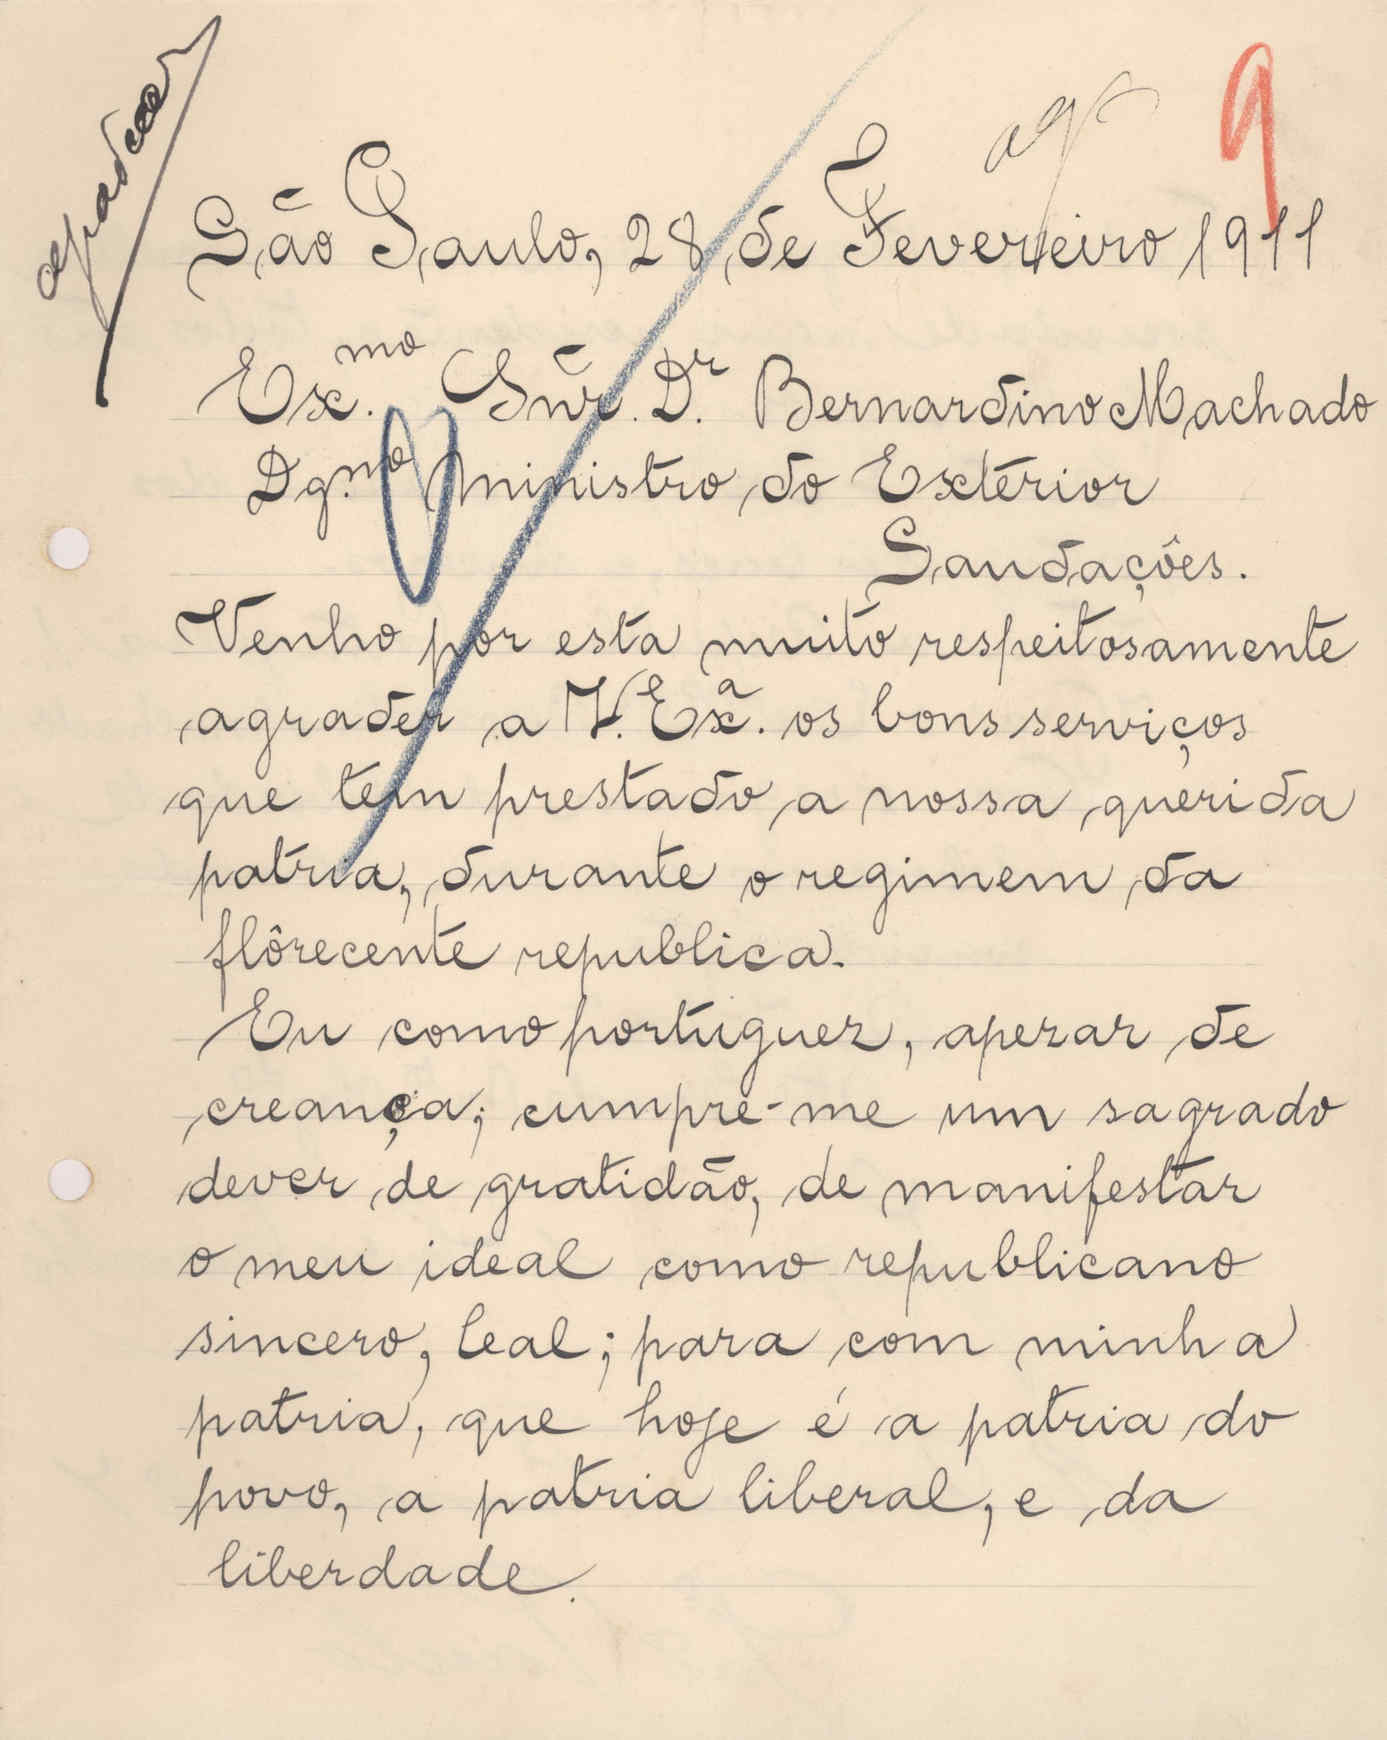 agradecer
ag
9
São Paulo, 28 de Fevereiro 1911
Ex.mo Snr. Dr. Bernardino Machado
Dg.mo Ministro do Exterior
Saudações.
Venho por esta muito respeitosamente
agrader a V. Exa. os bons serviços
que tem prestado a nossa querida
patria, durante o regimem da
flôrecente republica.
Eu como portuguez, apezar de
creança; cumpre-me um sagrado
dever de gratidão, de manifestar
o meu ideal como republicano
sincero, leal; para com minha
patria, que hoje é a patria do
povo, a patria liberal, e da
liberdade.